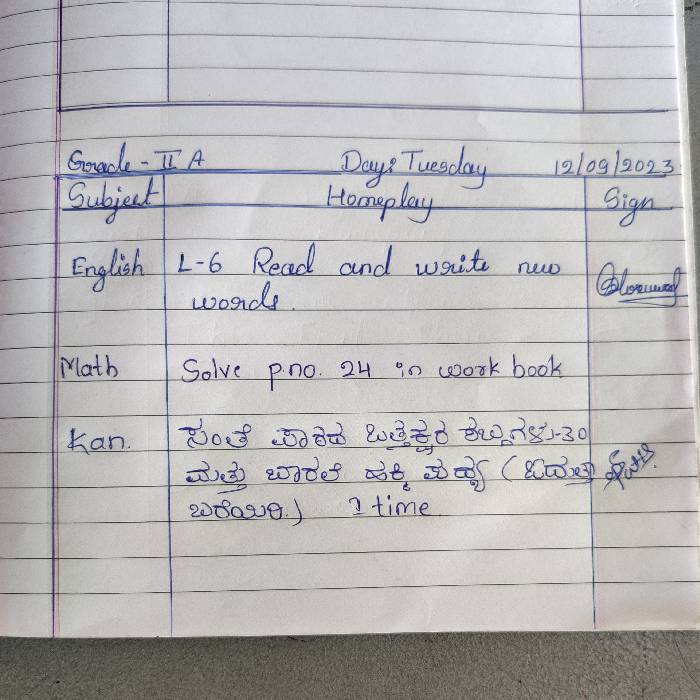 Grade - II A Day: Tuesday 12/09/2023
Subject Homeplay Sign
English L-6 Read and write new
words.
Math Solve p.no. 24 in work book
Kan. ಸಂತೆ ಪಾಠದ ಒತ್ತಕ್ಷರ -30
ಮತ್ತು ಬಾರಲೆ ಹಕ್ಕಿ ಪದ್ಯ (
ಬರೆಯಿರಿ.) 1 time